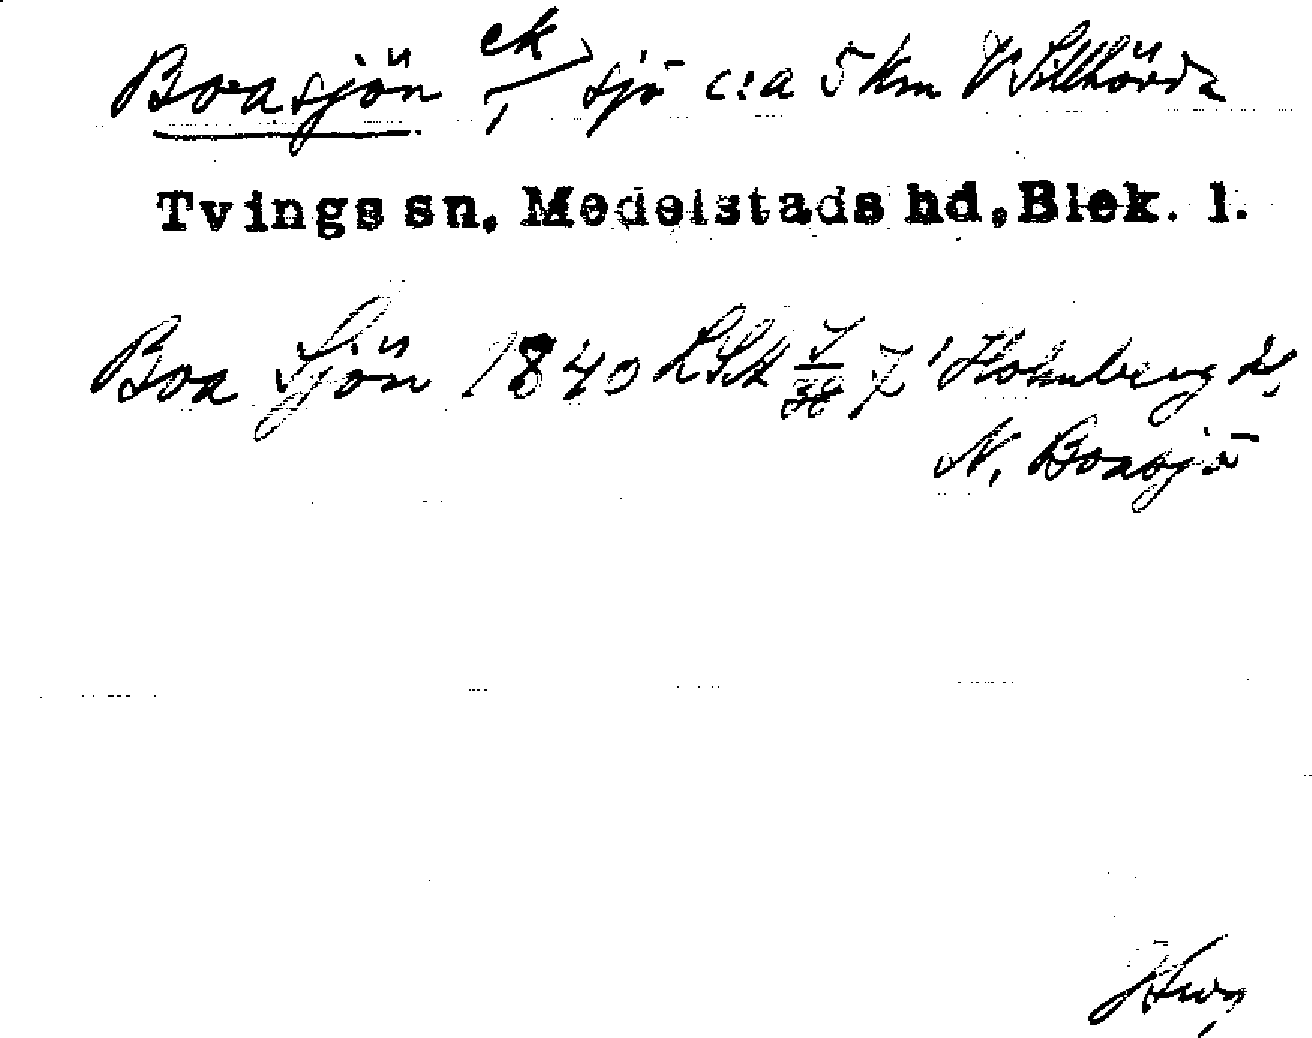 Boasjön ek/1 sjö c:a 5 km V Sillhövda
Tvings sn, Medelstads hd, Blek. l.
Boa Sjön 1840 LSA 7 Holmberg
N. Boasjö